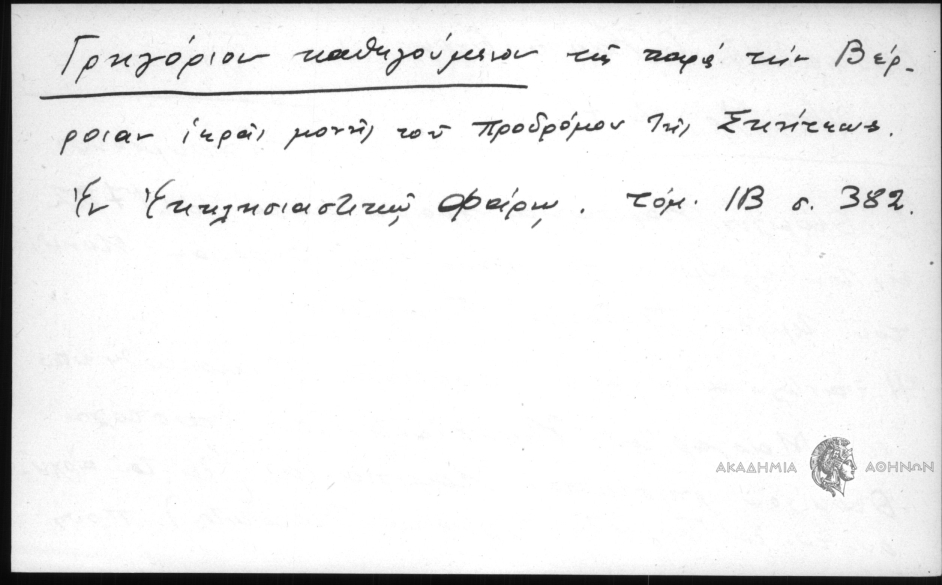 Γρηγόριον καθηγούμενον τῆς παρὰ τὴν Βέρ-
ροιαν ἱερᾶς μονῆς τοῦ Προδρόμου τῆς Σκήτεως.
Ἐν Ἐκκλησιαστικῷ Φάρῳ. τόμ. ΙΒ σ. 382.
ΑΚΑΔΗΜΙΑ ΑΘΗΝΩΝ